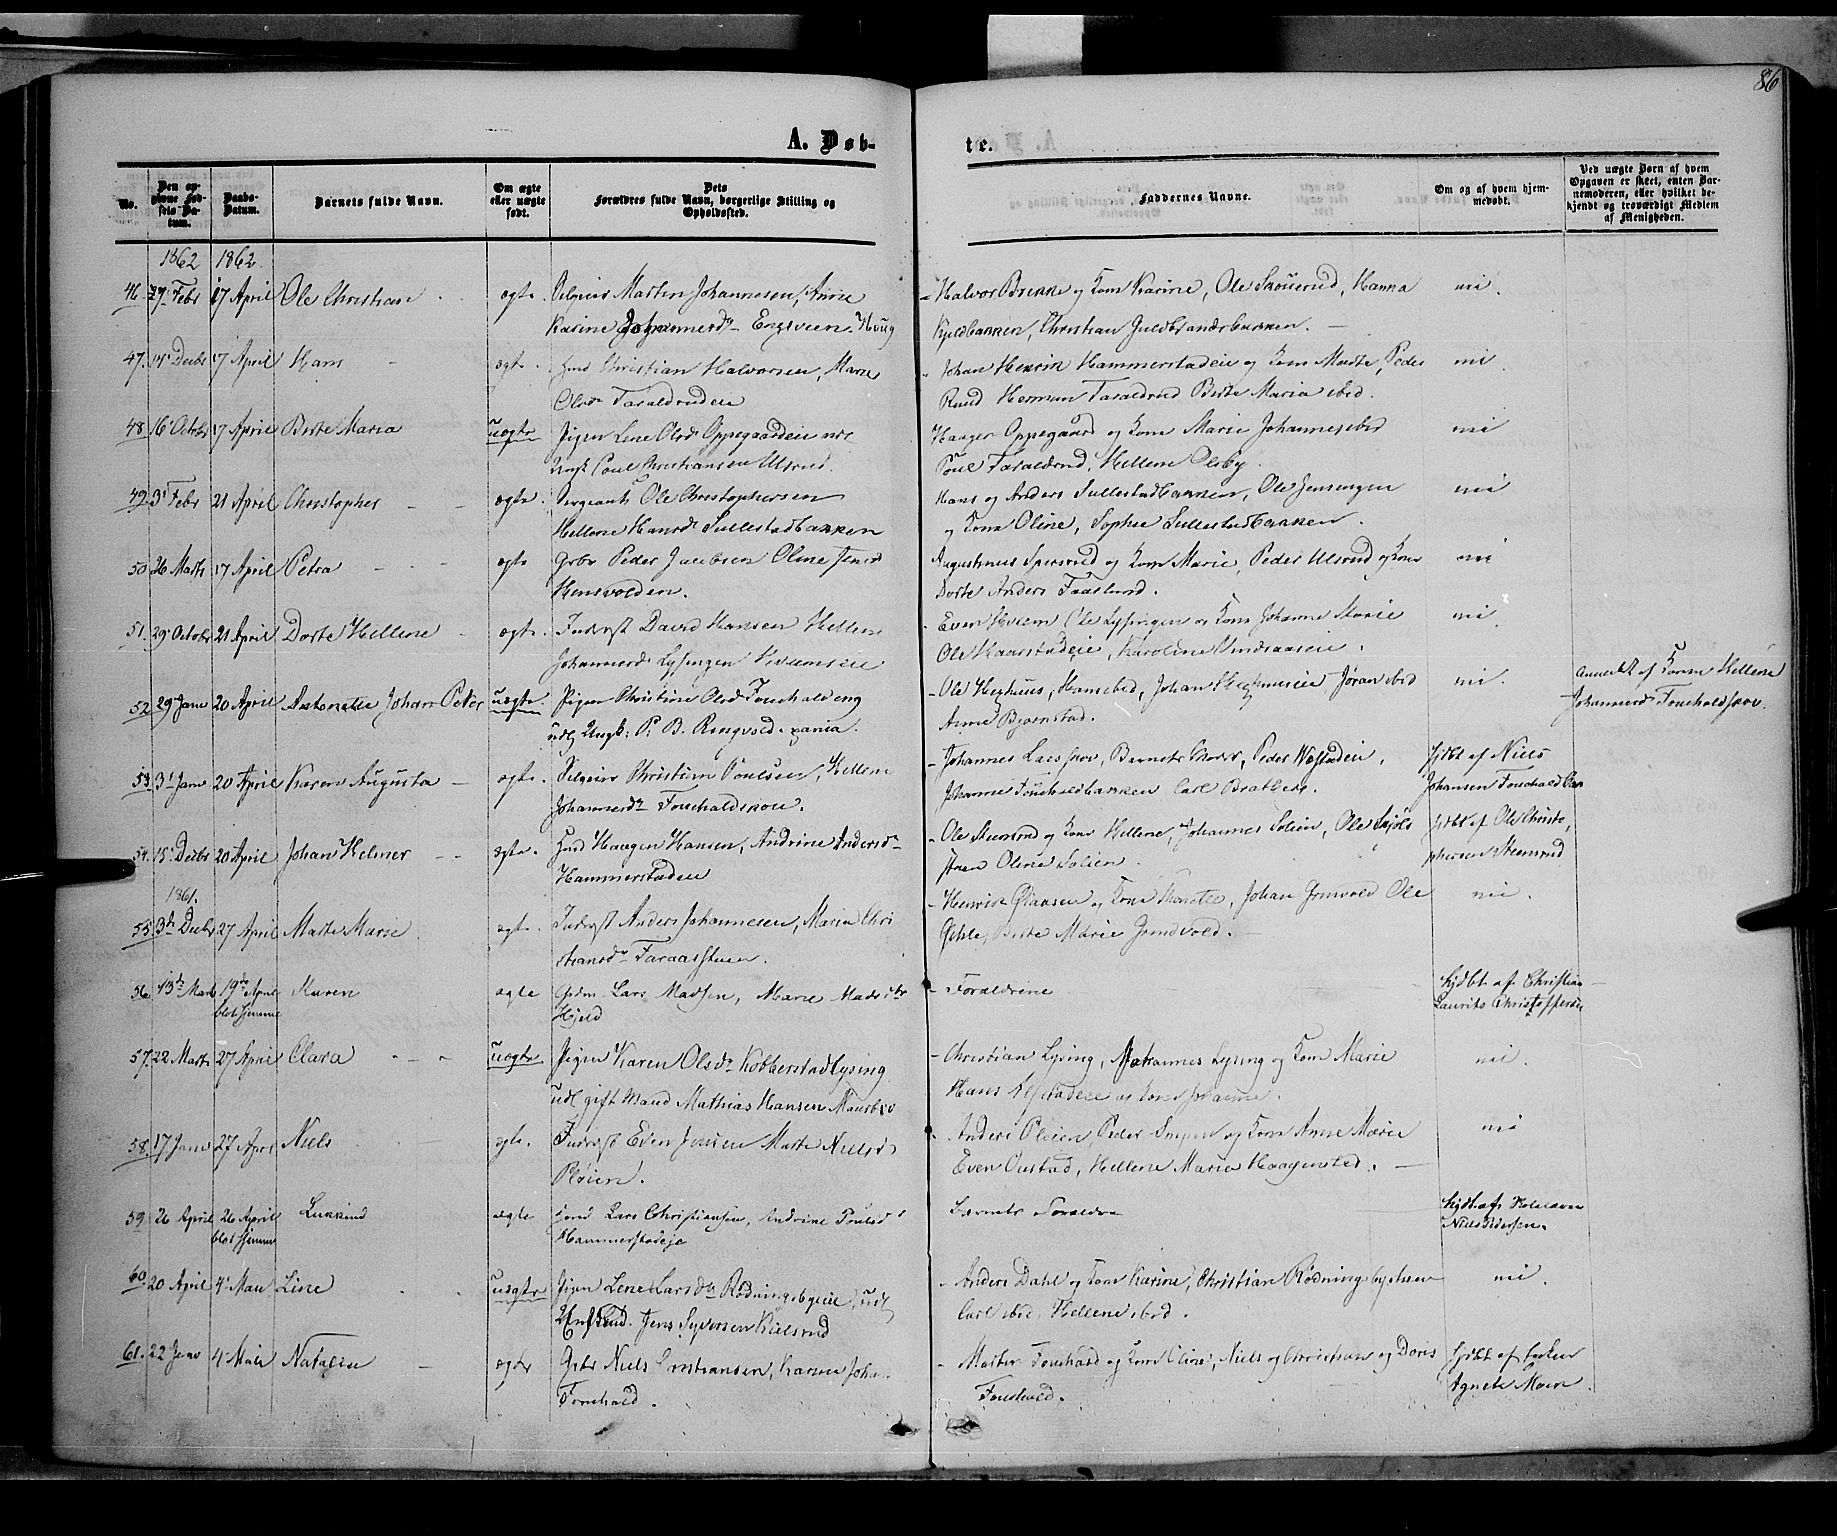 86
A. Døb-
te.
No.
Den op-
givne Fød-
sels Da-
tum.
Daabs-
Datum.
Barnets fulde Navn.
Om ægte
eller uægte
født.
Dets
Forældres fulde Navn, borgerlige Stilling og
Opholdssted.
Faddernes Navne.
Om og af hvem hjem-
medøbt.
Ved uægte Børn af hvem
Opgaven er skeet, enten Bar-
nemoderen, eller hvilket be-
kjendt og troværdigt Medlem
af Menigheden.
1862 1862
46. 27 Febr 17 April Ole Christian ægte Selveier Martin Johannesen, Anne
Karine Johannesd. Engsveen. Houg
Halvor Brekke og Kone Karine, Ole Skouerud, Hanna
Kyldbakken, Christian Guldbrandsbakken. nei.
47. 14 Decbr 17 April Hans ægte Huusmd Christian Halvorsen, Marie
Olsdr Taraldrudeie
Johan Henrik Hammerstadeie og Kone Marthe, Peder
Ruud Herman Taraldrud Birte Maria ibid. nei
48. 16 Octobr 17 April Birte Maria uægte Pigen Lene Olsdr Oppegaardeie udl
Ungk Poul Christiansen Ulsrud.
Haagen Oppegaard og Kone Marie Johannes ibid
Poul Taraldrud, Hellene Olsby. nei
49. 3 Febr 21 April Christopher ægte. Sergeant Ole Christophersen
Hellene Hansdr Sullestadbakken
Hans og Anders Sullestadbakken, Ole Jensengen
og Kone Oline, Sophie Sullestadbakken. nei
50 26 Marts 17 April Petra ægte Grbr Peder Jacobsen Oline Jensd
Hensvolden.
Augustinus Spersrud og Kone Marie, Peder Ulsrud og Kone
Dorte Anders Faaslund. nei
51. 29 Octobr 21 April Dorte Hellene ægte. Inderst David Hansen Hellene
Johannesd Lysingen Kveemseie
Even Hveem Ole Lysingen og Kone Johanne Marie
Ole Haarstadeie, Karoline Vindsaaseie. nei.
52 29 Janr 20 April Antonette Johan Peter uægte. Pigen Christine Olsd Fouchaldeng
udl Ungk: P. B. Ringvold
Ole Heghuus, Hans ibid, Johan Jøran ibid
Anne Bjørnstad. nei. anmeldt af Konen Hellene
Johannesd Fouchaldskov.
53 3 Janr 20 April Karen Augusta ægte. Selveier Christian Poulsen, Hellene
Johannesdr Fouchaldskov.
Johannes Laesskov, Barnets Moder, Peder Næstadeie,
Johanne Fouchaldbakken Carl Bratberg. hjdbt af Niels
Johansen Fouchald
54. 15 Decbr 20 April Johan Helmer ægte. Husmd Haagen Hansen, Andrine Andersd
Hammerstadeie
Ole Steensrud og Kone Hellene, Johannes Solien, Ole
Oline Solien. hjdbt af Ole Christo,
phersen Steensrud
1861.
55 3d Decbr 27 April Marte Marie ægte. Inderst Anders Johannesen, Maria Chri
stiansdr Taraasstuen.
Henrik Olaasen og Kone Anette, Johan Grimvold Ole
Gihle, Birte Marie Grindvold. nei.
56 13de Mart 19de April
blot hjemme Karen ægte Grdm. Lars Madsen, Marie Madsdtr
Hjeld
Forældrene hjdbt af Christian
Laurits Christoffersen
57. 22 Marts 27 April Clara uægte Pigen Karen Olsdr Kobberstad Lysing
udl gift Mand Mathias Hansen
Christian Lysing, Johannes Lysing og Kone Marie
Hans og Kone Johanne. nei.
58. 17 Janr 27 April Niels ægte. Inderst Even Jensen Marte Nielsd
Pløien.
Anders Pløien, Peder og Kone Anne Marie
Even Oustad, Hellene Maria Haagenstad. nei
59 26 April 26 April
blot hjemme ægte Husmd Lars Christiansen, Andrine Poulsd
Hammerstadeje
Barnets Forældre hjdbt af
Niels Pedersen.
60 20 April 4 Mai Line uægte Pigen Lene Larsdtr Rødningsbyeie, udl
Jens Syversen Kielsrud
Anders Dahl og Kone Karine, Christian Rødningsbystuen
Carl ibid Hellene ibid. nei.
61. 22 Janr 4 Mai Natalia ægte Grbr Niels Cristiansen, Karine Joha
Fouchald.
Martin Fouchald og Kone Oline, Niels og Christian og Doris
Fouchald. hjdbt af
Agnete Moen